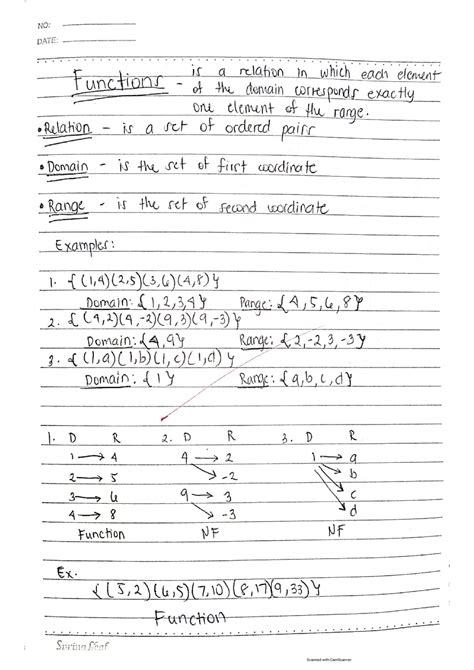 NO:
DATE:
Functions - is a relation in which each element
of the domain corresponds exactly
one element of the range.
• Relation - is a set of ordered pairs
• Domain - is the set of first coordinate
• Range - is the set of second coordinate
Examples:
1. {(1,4)(2,5)(3,6)(4,8)}
Domain: {1,2,3,4} Range: {4,5,6,8}
2. {(4,2)(4,-2)(9,3)(9,-3)}
Domain: {4,9} Range: {2,-2,3,-3}
3. {(1,a)(1,b)(1,c)(1,d)}
Domain: {1} Range: {a,b,c,d}
1. D R 2. D R 3. D R
1 → 4 4 → 2 1 → a
2 → 5 -2 b
3 → 6 9 → 3 c
4 → 8 -3 d
Function NF NF
Ex.
{(5,2)(6,5)(7,10)(8,17)(9,33)}
Function
Scanned with CamScanner